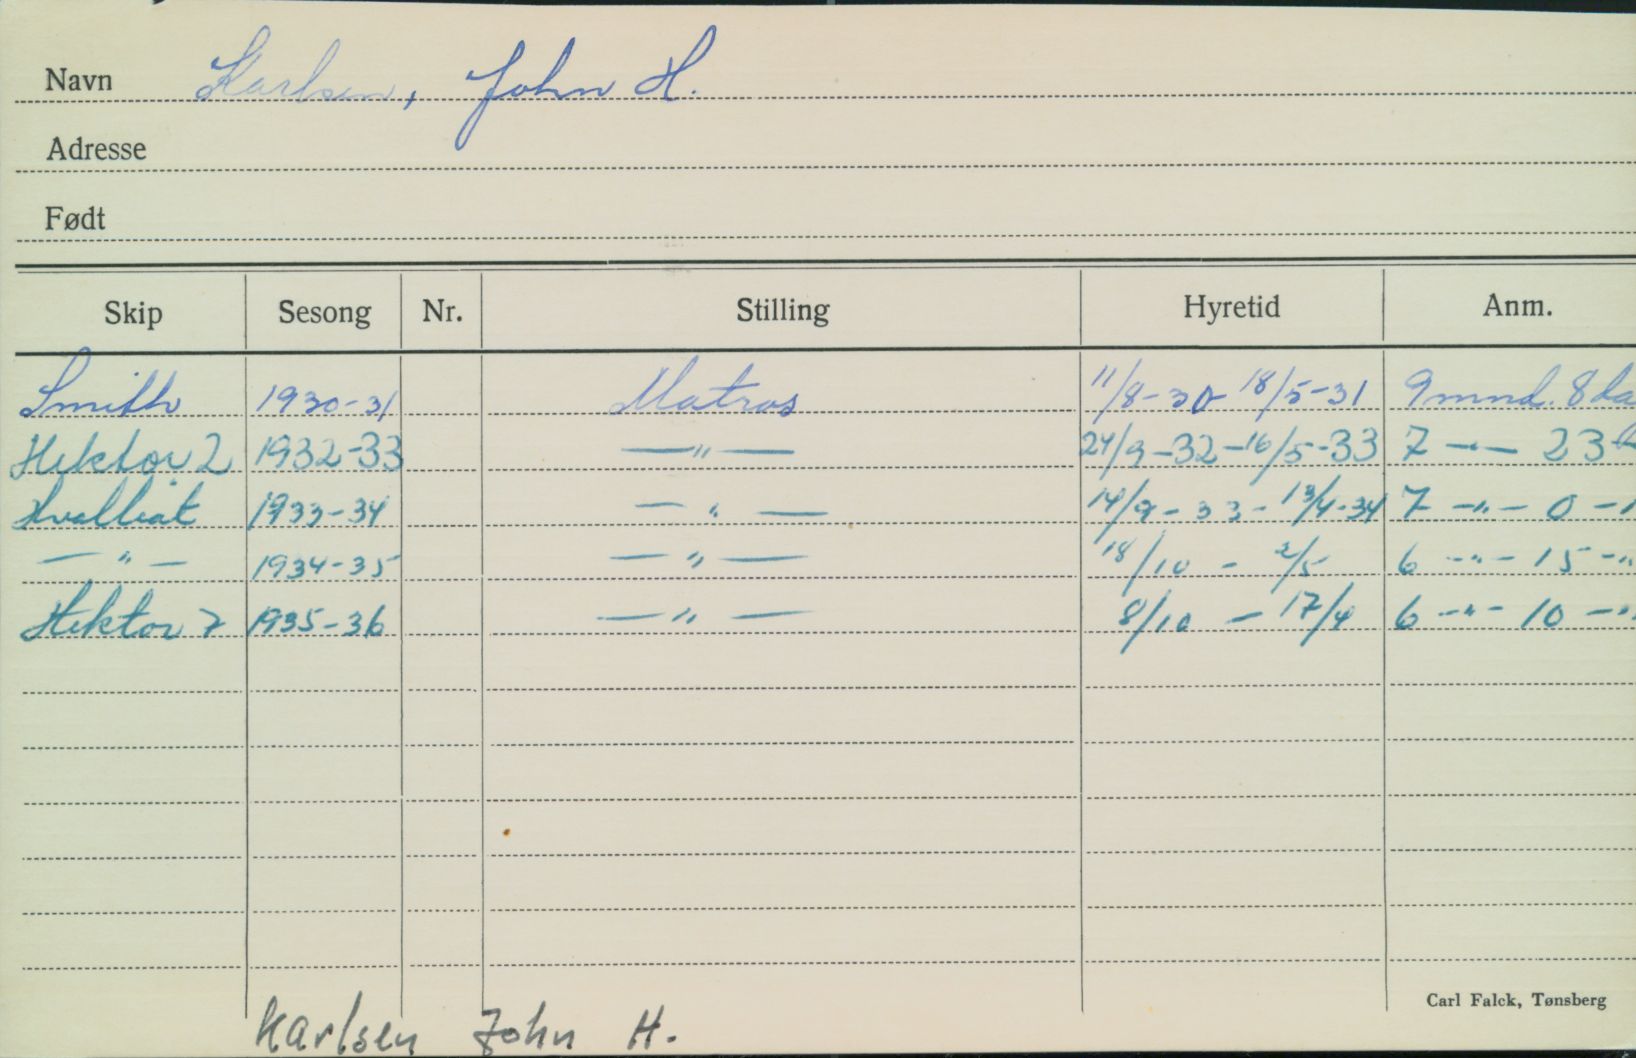 Navn Karlsen, John H.
Adresse
Født
Skip Sesong Nr. Stilling Hyretid Anm.
Smith 1930-31 Matros 11/8-30 18/5-31 9 mnd. 8 da
Hektor 2 1932-33 —"— 24/9-32-16/5-33 7 -"- 23
Hvalkat 1933-34 —"— 14/9-33-13/4-34 7 -"- 0 -"
—"— 1934-35 —"— 18/10 - 2/5 6 -"- 15 -"-
Hektor 7 1935-36 —"— 8/10 - 17/4 6 -"- 10 -"-
Carl Falck, Tønsberg
Karlsen John H.